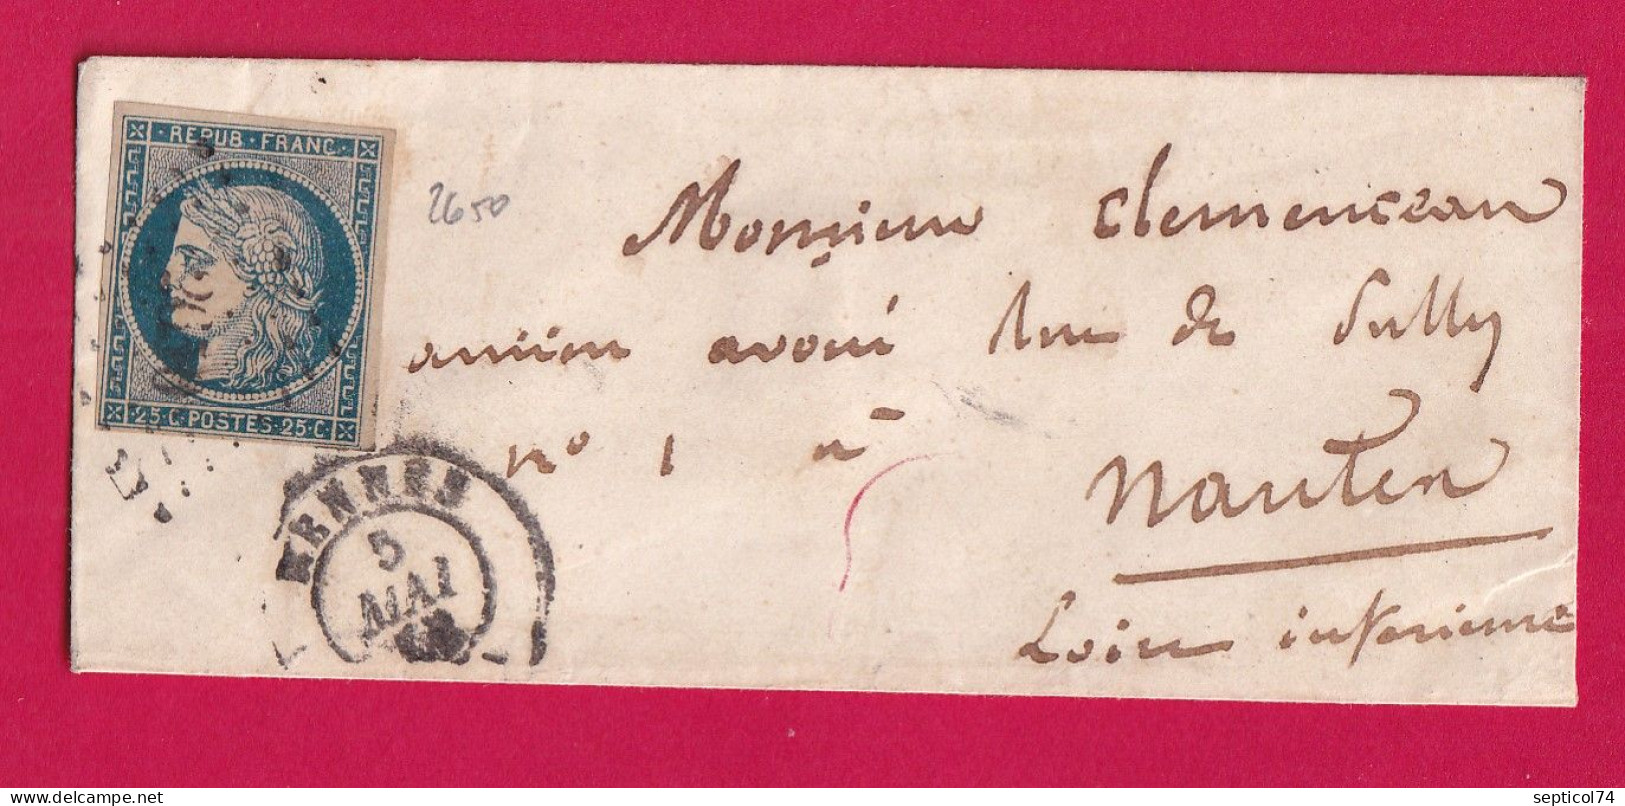 REPUB · FRANC ·
· 25 · C · POSTES · 25 · C ·
2650
Monsieur Clemenceau
ancien avoué Rue de Sully
no 1 à
Nantes
Loire inférieure
RENNES
5
MAI
septicol74